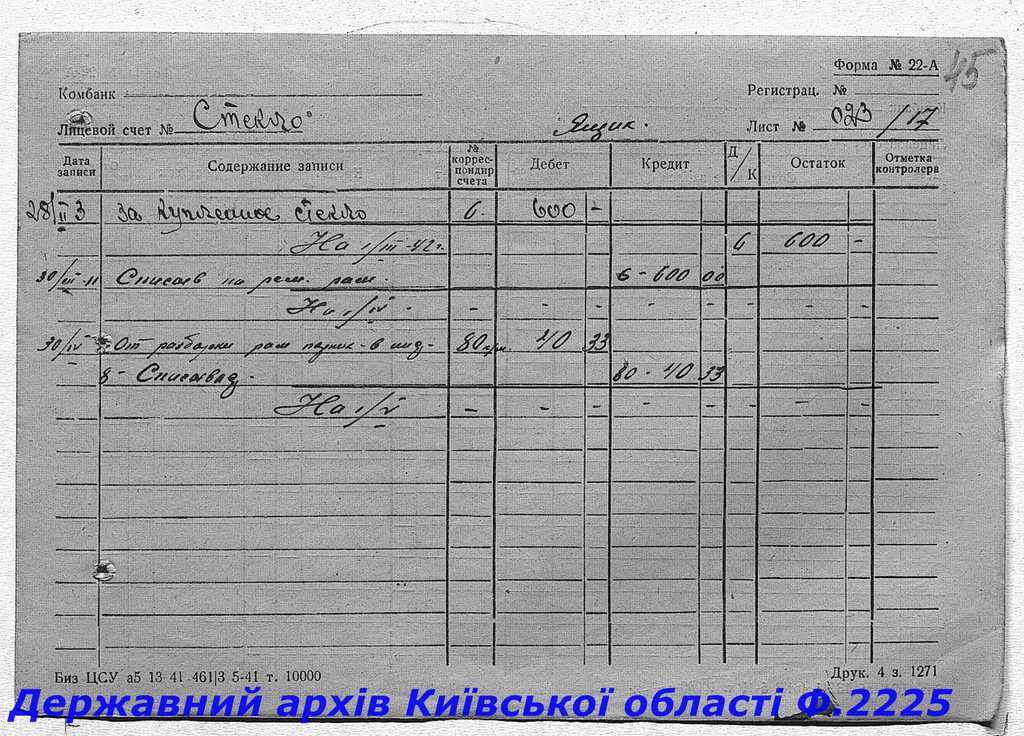 Форма № 22-А
45
Комбанк
Регистрац. №
Лицевой счет № Стекло
Ящик.
Лист № 023/17
Дата записи
Содержание записи
№ коррес-пондир счета
Дебет
Кредит
Д/К
Остаток
Отметка контролера
28/II 3 За купленное стекло 6. 600 -
На 1/III-42г. 600 -
30/III Списав на рем. рам. 6 - 600 00
На 1/IV - - - - - - - - -
30/IV От разборки рам 80 40 33
Списвод. 80 - 40 33
На 1/V - - - - - - - - -
Биз ЦСУ а5 13 41 461|3 5-41 т. 10000
Друк. 4 з. 1271
Державний архів Київської області Ф.2225